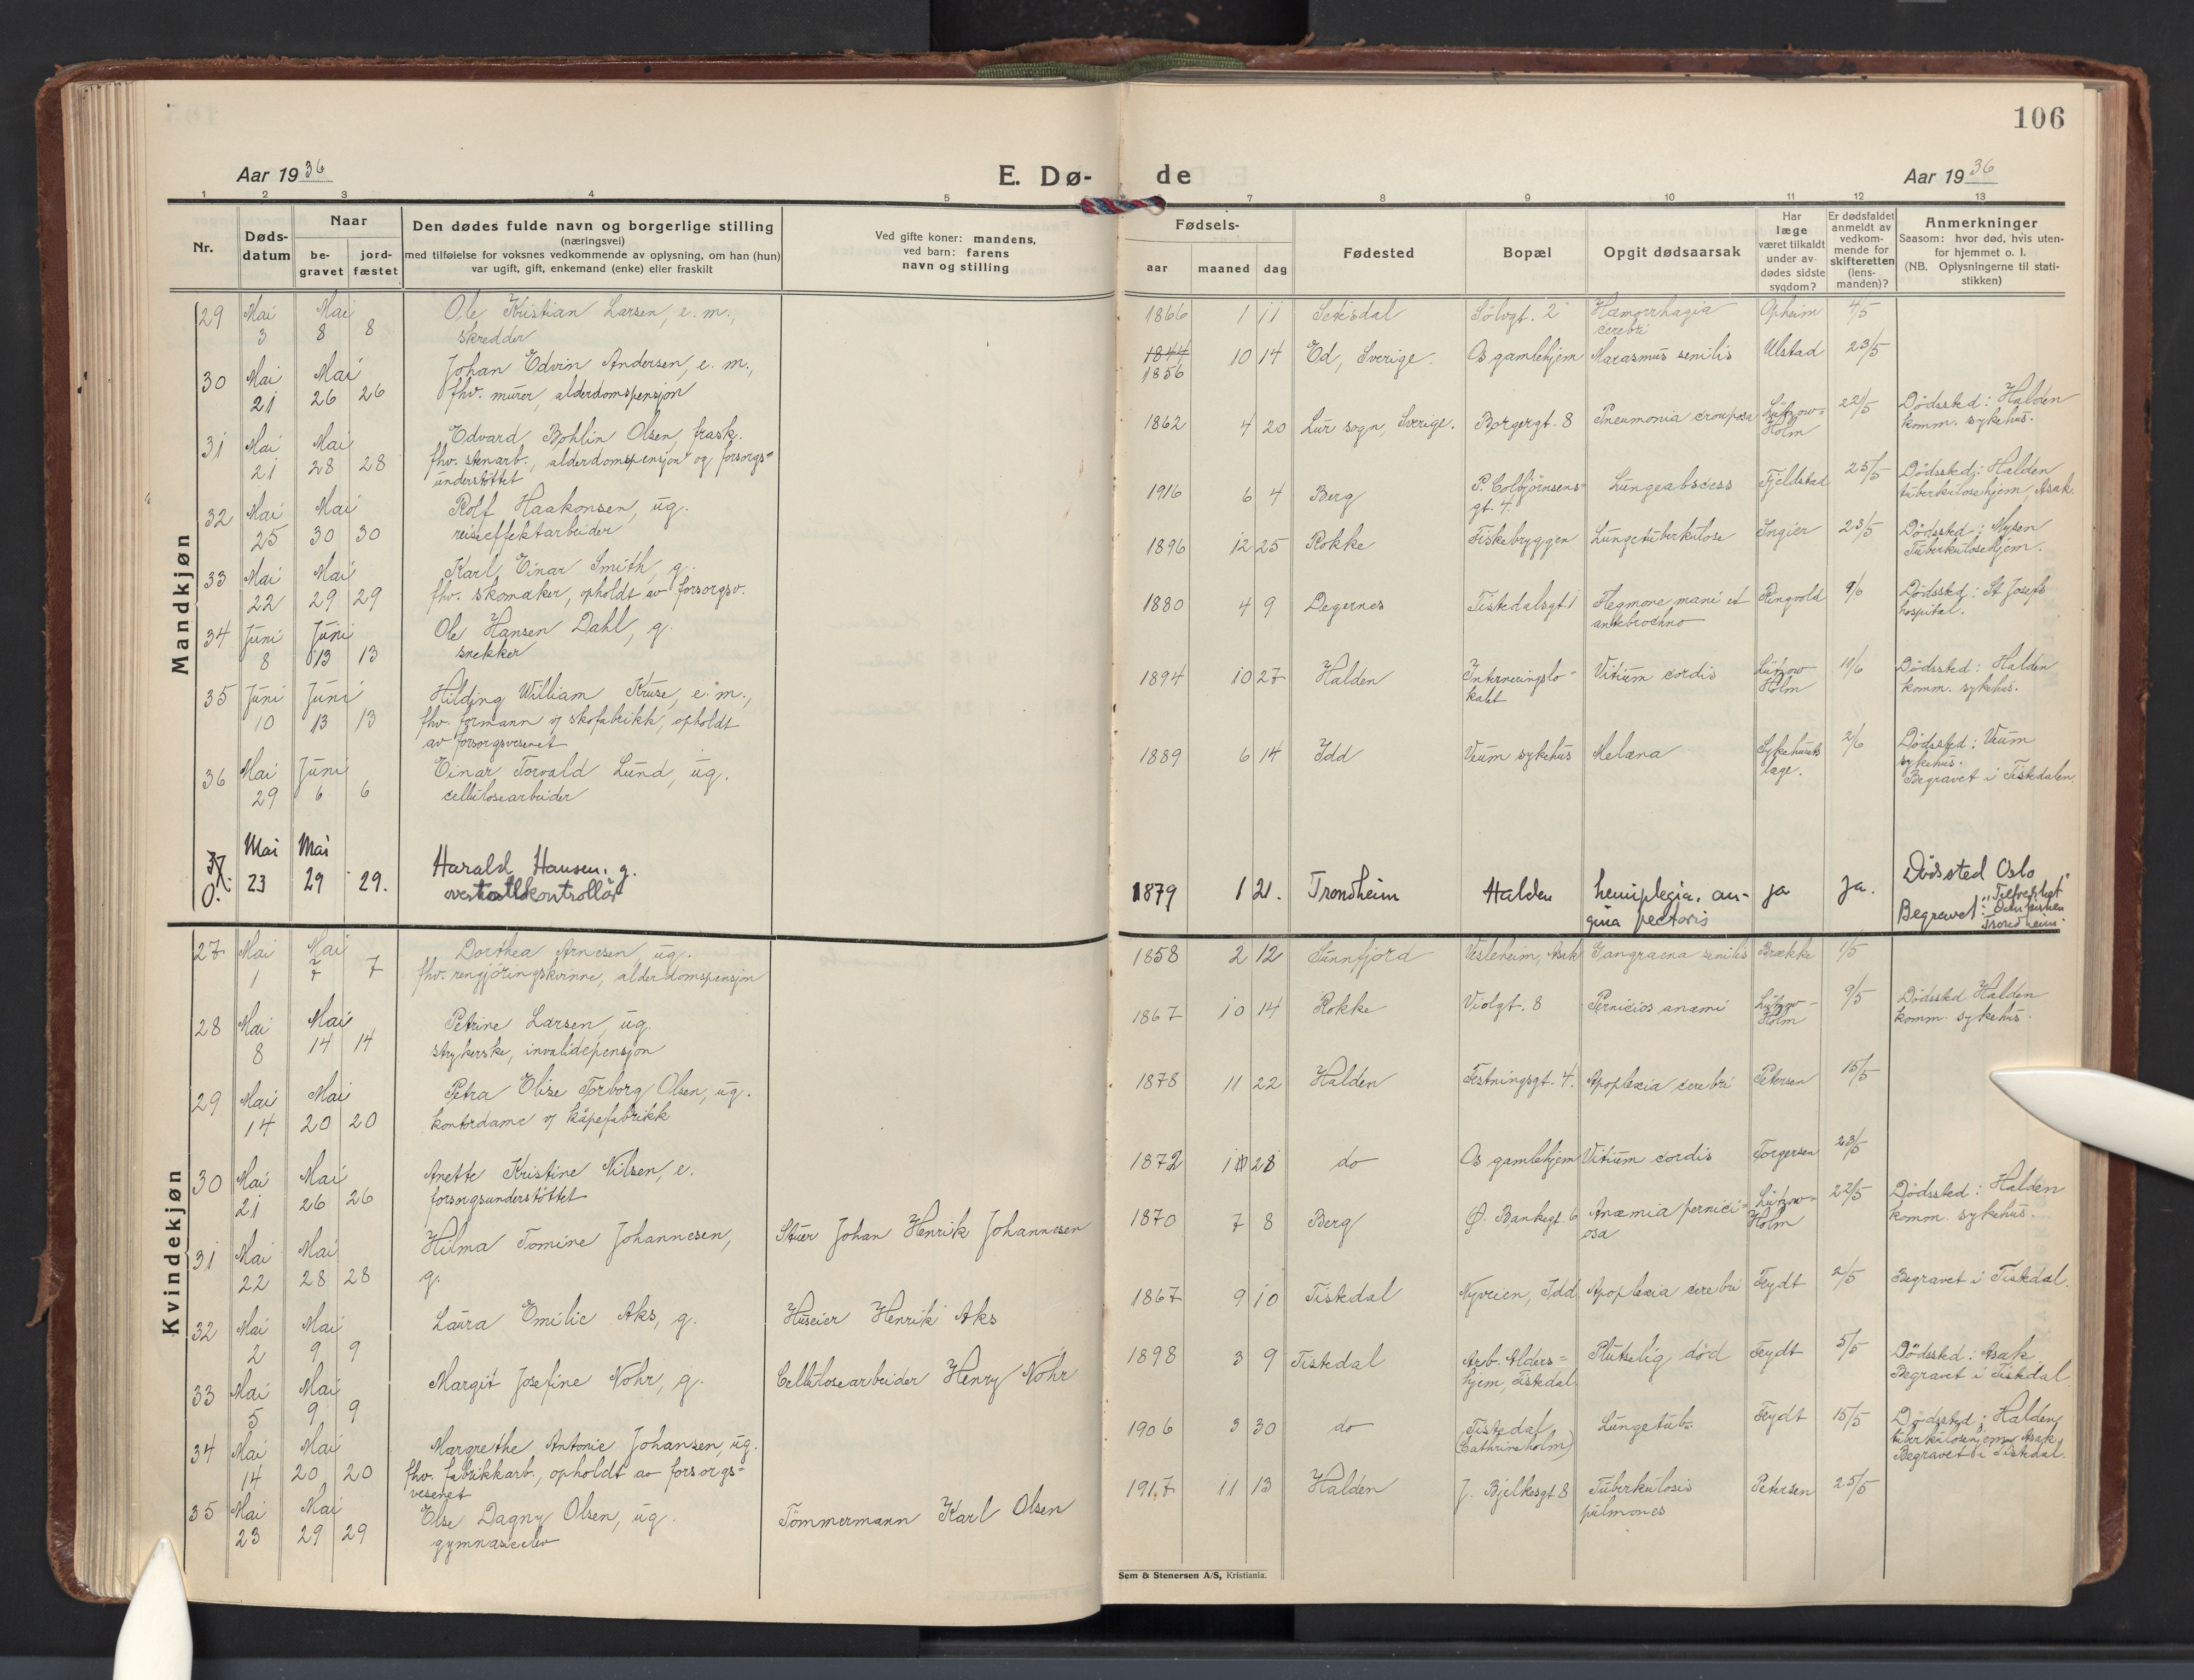 106
Aar 1936
E. Dø-
de
Aar 1936
1 2 3 4 5 7 8 9 10 11 12 13
Nr.
Døds-
datum
Naar
be-
gravet
jord-
fæstet
Den dødes fulde navn og borgerlige stilling
(næringsvei)
med tilføielse for voksnes vedkommende av oplysning, om han (hun)
var ugift, gift, enkemand (enke) eller fraskilt
Ved gifte koner: mandens,
ved barn: farens
navn og stilling
Fødsels-
aar maaned dag
Fødested
Bopæl
Opgit dødsaarsak
Har
læge
været tilkaldt
under av-
dødes sidste
sygdom?
Er dødsfaldet
anmeldt av
vedkom-
mende for
skifteretten
(lens-
manden)?
Anmerkninger
Saasom: hvor død, hvis uten-
for hjemmet o. l.
(NB. Oplysningerne til stati-
stikken)
Mandkjøn
29 Mai Mai Ole Kristian Larsen, e. m., 1866 1 11 Setesdal Sølvgt. 2 Hæmorrhagia Opheim 4/5
3 8 8 skredder cerebri
30 Mai Mai Johan Edvin Andersen, e. m., 1844 10 14 Ed, Sverige. Os gamlehjem Marasmus senilis Ulstad 23/5
21 26 26 fhv. murer, alderdomspensjon 1856
31 Mai Mai Edvard Bohlin Olsen, frask. 1862 4 20 Lur sogn, Sverige. Borgergt. 8 Pneumonia crouposa Lützow- 22/5 Dödssted: Halden
21 28 28 fhv. stenarb., alderdomspensjon og forsorgs- Holm komm. sykehus.
understöttet
32 Mai Mai Rolf Haakonsen, ug. 1916 6 4 Berg P. Colbjörnsens- Lungeabscess Fjeldstad 25/5 Dödssted: Halden
25 30 30 reiseeffektarbeider gt. 4. tuberkulosehjem, Asak.
33 Mai Mai Karl Einar Smith, g. 1896 12 25 Rokke Fiskebryggen Lungetuberkulose Ingier 23/5 Dödssted: Mysen
22 29 29 fhv. skomaker, opholdt av forsorgsv. Tuberkulosehjem.
34 Juni Juni Ole Hansen Dahl, g. 1880 4 9 Degernes Tistedalsgt. 1 Flegmone mani et Ringvold 9/6 Dödssted: St. Josefs
8 13 13 snekker antebrochno hospital.
35 Juni Juni Hilding William Kruse, e. m., 1894 10 27 Halden Interneringslo- Vitium cordis Lützow- 10/6 Dödssted: Halden
10 13 13 fhv. formann v/ skofabrikk, opholdt kalet Holm komm. sykehus.
av forsorgsvesenet
36 Mai Juni Einar Torvald Lund, ug. 1889 6 14 Idd Veum sykehus Melæna Sykehusets 2/6 Dödssted: Veum
29 6 6 cellulosearbeider læge. sykehus.
Begravet i Tistedalen.
37. Mai Mai Harald Hansen, g. 1879 1 21. Trondheim Halden hemiplegia, an- ja ja. Dødssted Oslo
O. 23 29 29. overtollkontrollør gina pectoris Begravet: "Tilfredshet"
Trondheim.
Kvindekjøn
27 Mai Mai Dorthea Arnesen, ug. 1858 2 12 Sunnfjord Vesleheim, Asak Gangraena senilis Brække 1/5
1 7 7 fhv. rengjöringskvinne, alderdomspensjon
28 Mai Mai Petrine Larsen, ug. 1867 10 14 Rokke Violgt. 8 Perniciøs anæmi Lützow- 9/5 Dödssted Halden
8 14 14 strykerske, invalidepensjon Holm komm. sykehus.
29 Mai Mai Petra Elise Torborg Olsen, ug. 1878 11 22 Halden Festningsgt. 4. Apoplexia cerebri Petersen 15/5
14 20 20 kontordame v/ kåpefabrikk
30 Mai Mai Anette Kristine Nilsen, e. 1872 28 do Os gamlehjem Vitium cordis Torgersen 23/5
21 26 26 forsorgsunderstöttet
31 Mai Mai Hilma Tomine Johannesen, Stuer Johan Henrik Johannesen 1870 7 8 Berg Ø. Bankegt. 6 Anæmia pernici- Lützow- 22/5 Dödssted: Halden
22 28 28 g. osa Holm komm. sykehus.
32 Mai Mai Laura Emilie Aks, g. Huseier Henrik Aks 1867 9 10 Tistedal Nyveien, Idd Apoplexia cerebri Feydt 2/5 Begravet i Tistedal.
2 9 9
33 Mai Mai Margit Josefine Nohr, g. Cellulosearbeider Henry Nohr 1898 3 9 Tistedal Arb. Alders- Plutselig död Feydt 5/5 Dödssted: Asak
5 9 9 hjem, Tistedal Begravet i Tistedal.
34 Mai Mai Margrethe Antonie Johansen, ug. 1906 3 30 do Tistedal Lungetub. Feydt 15/5 Dödssted: Halden
14 20 20 fhv. fabrikkarb., opholdt av forsorgs- (Cathrineholm) tuberkulosehjem, Asak
vesenet Begravet i Tistedal.
35 Mai Mai Else Dagny Olsen, ug. Tömmermann Karl Olsen 1917 11 13 Halden J. Bjelkesgt 8 Tuberkulosis Petersen 25/5
23 29 29 gymnasieelev pulmones
Sem & Stenersen A/S, Kristiania.